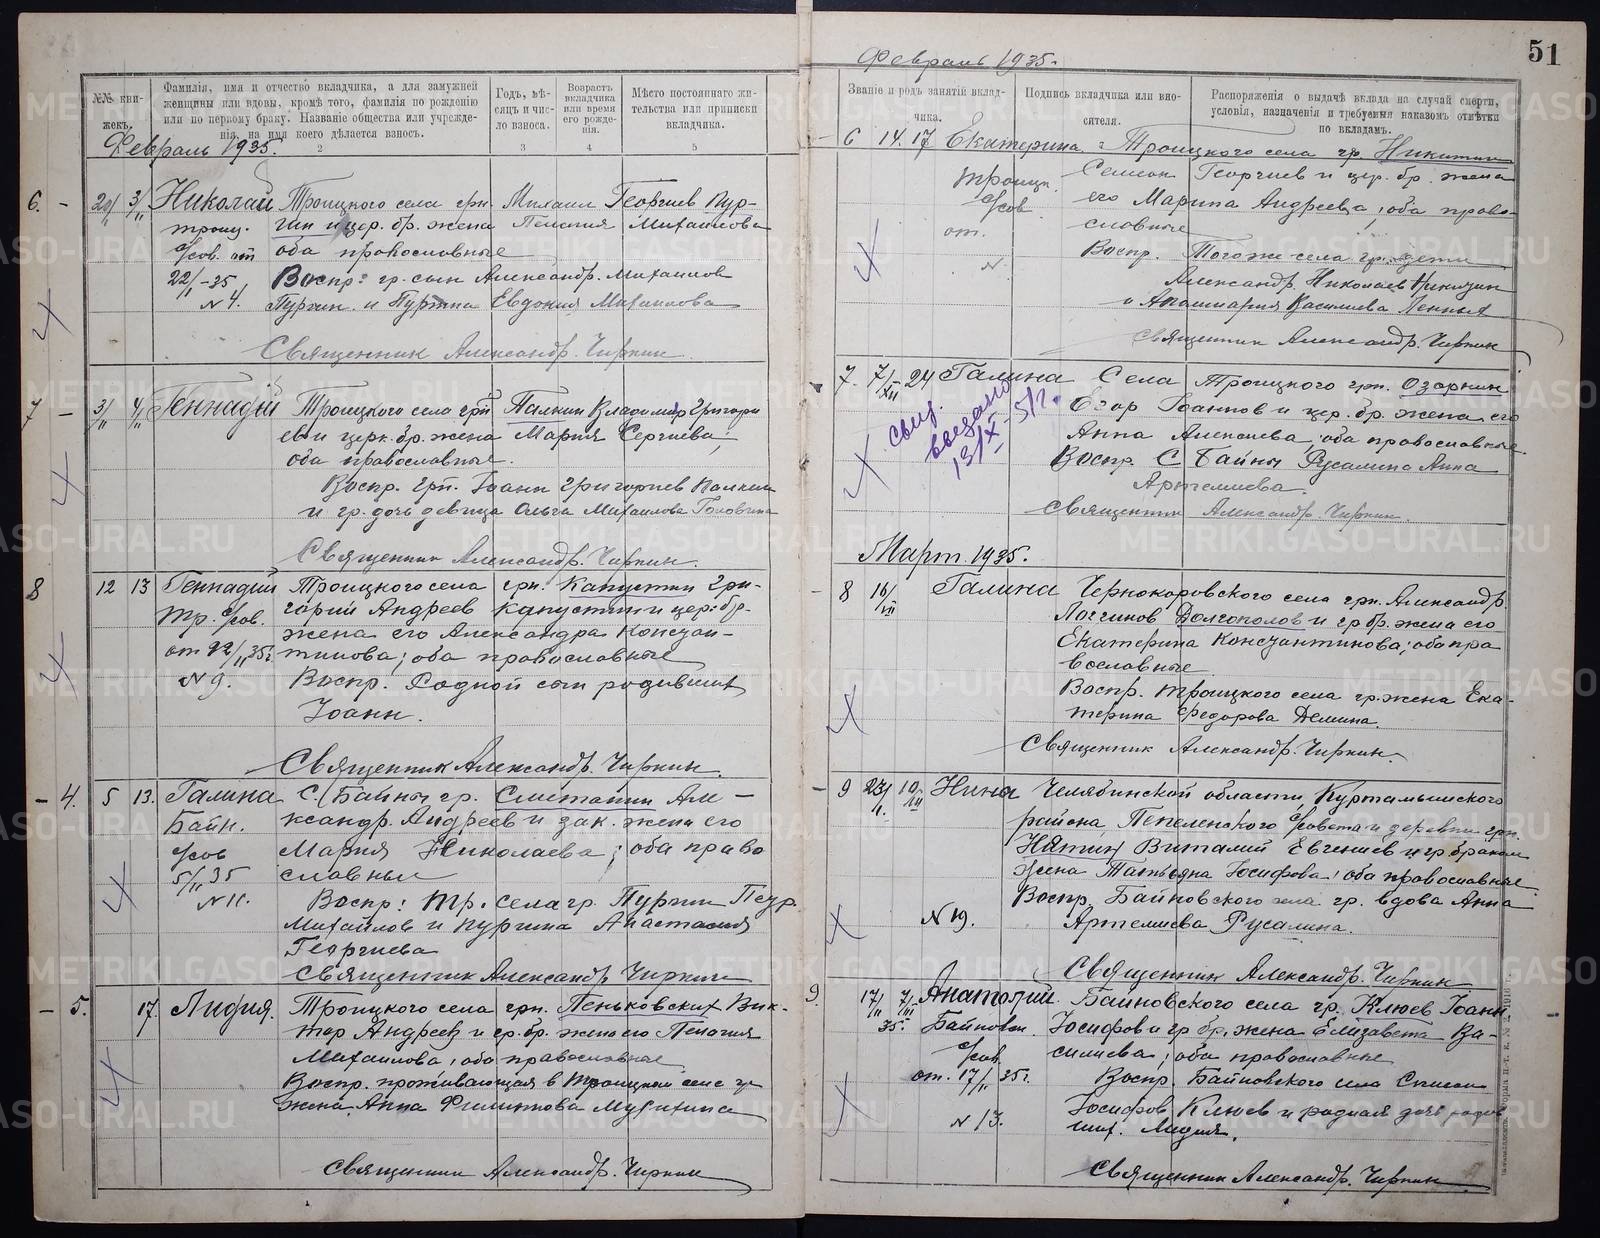 №№ кни-
жекъ.
Фамилія, имя и отчество вкладчика, а для замужней
женщины или вдовы, кромѣ того, фамилія по рожденію
или по первому браку. Названіе общества или учрежде-
нія, на имя коего дѣлается взносъ.
Годъ, мѣ-
сяцъ и чис-
ло взноса.
Возрастъ
вкладчика
или время
его рожде-
нія.
Мѣсто постояннаго жи-
тельства или приписки
вкладчика.
2 3 4 5
Февраль 1935.
6. - 20/I 3/II Николай Троицкого села грн. Михаил Георгиев Пур-
троиц. гин и цер. бр. жена Пелагия Михаилова
с/сов. от оба православные
22/I-35 Воспр: гр. сын Александр. Михаилов
№ 4. Пургин. и Пургина Евдокия Михаилова
Священник Александр. Чиркин.
7 - 3/II 4/II Геннадій Троицкого села грн Палкин Владимир Григори
еви церк. бр. жена Мария Сергиева;
оба православные.
Воспр. грн. Іоанн Григориев Палкин
и гр. дочь девица Ольга Михаилова
Священник Александр. Чиркин.
8 12 13 Геннадий Троицкого села грн. Капустин Гри-
Тр. с/сов. горий Андреев Капустин и цер. бр.
жена его Александра Констан-
от 22/II 35г. тинова; оба православные
№ 9. Воспр. Родной сын родивших
Іоанн.
Священник Александр. Чиркин.
- 4. 5 13. Галина С. Байны гр. Сметанин Але-
Байн. ксандр. Андреев и зак. жена его
с/сов Мария Николаева; оба право
5/II 35 славные
№ 11. Воспр: Тр. села гр. Пургин Петр.
Михайлов и Пургина Анастасия
Георгиева
Священник Александр Чиркин
- 5. 17. Лидия. Троицкого села грн. Пеньковских Вик-
тор Андреев и гр. бр. жена его Пелагия
Михаилова, оба православные
Воспр. проживающая в Троицком селе гр
жена Анна Филиппова
Священник Александр. Чиркин
51
Февраль 1935.
Званіе и родъ занятій вклад-
чика.
Подпись вкладчика или вно-
сителя.
Распоряженія о выдачѣ вклада на случай смерти,
условія, назначенія и требуемыя наказомъ отмѣтки
по вкладамъ.
- 6 14. 17 Екатерина Троицкого села гр. Никитин
троиц. Семион Георгиев и цер. бр. жена
с/сов. его Марина Андреева; оба право-
от. славные
№. Воспр. Того же села гр. дети
Александр. Николаев Никитин
и Апполинария Василиева
Священник Александр. Чиркин
- 7. 7/XII - 24 Галина Села Троицкого грн. Озорнин
Егор Іоаннов и цер. бр. жена его
Анна Алексиева, оба православные
Воспр. С Байны Русалина Анна
Артемиева.
Священник Александр. Чиркин.
свид.
выдано
13/X - 51г.
Март 1935.
- 8 16/VII Галина Чернокоровского села грн. Александр.
Логгинов Долгополов и гр бр. жена его
Екатерина Константинова; оба пра
вославные
Воспр. Троицкого села гр. жена Ека-
терина Федорова Демина.
Священник Александр. Чиркин.
- 9 23/I. 19/III Нина Челябинской области, Куртамышского
района, Пепеленского с/совета и деревни грн.
Нятин Виталий Евгениев и гр браком
жена Татьяна Іосифова; оба православные.
Воспр. Байновского села гр. вдова Анна
№ 19. Артемиева Русалина.
Священник Александр. Чиркин
9. 17/II 7/III Анатолий. Байновского села гр. Клюев Іоанн.
35г. Байновск. Іосифов и гр бр. жена Елизавета Ва-
с/сов. силиева; оба православные
от. 17/II 35г. Воспр. Байновского села
№ 13. Іосифов Клюев и родная дочь родив
ших. Лидия.
Священник Александр. Чиркин
METRIKI.GASO-URAL.RU